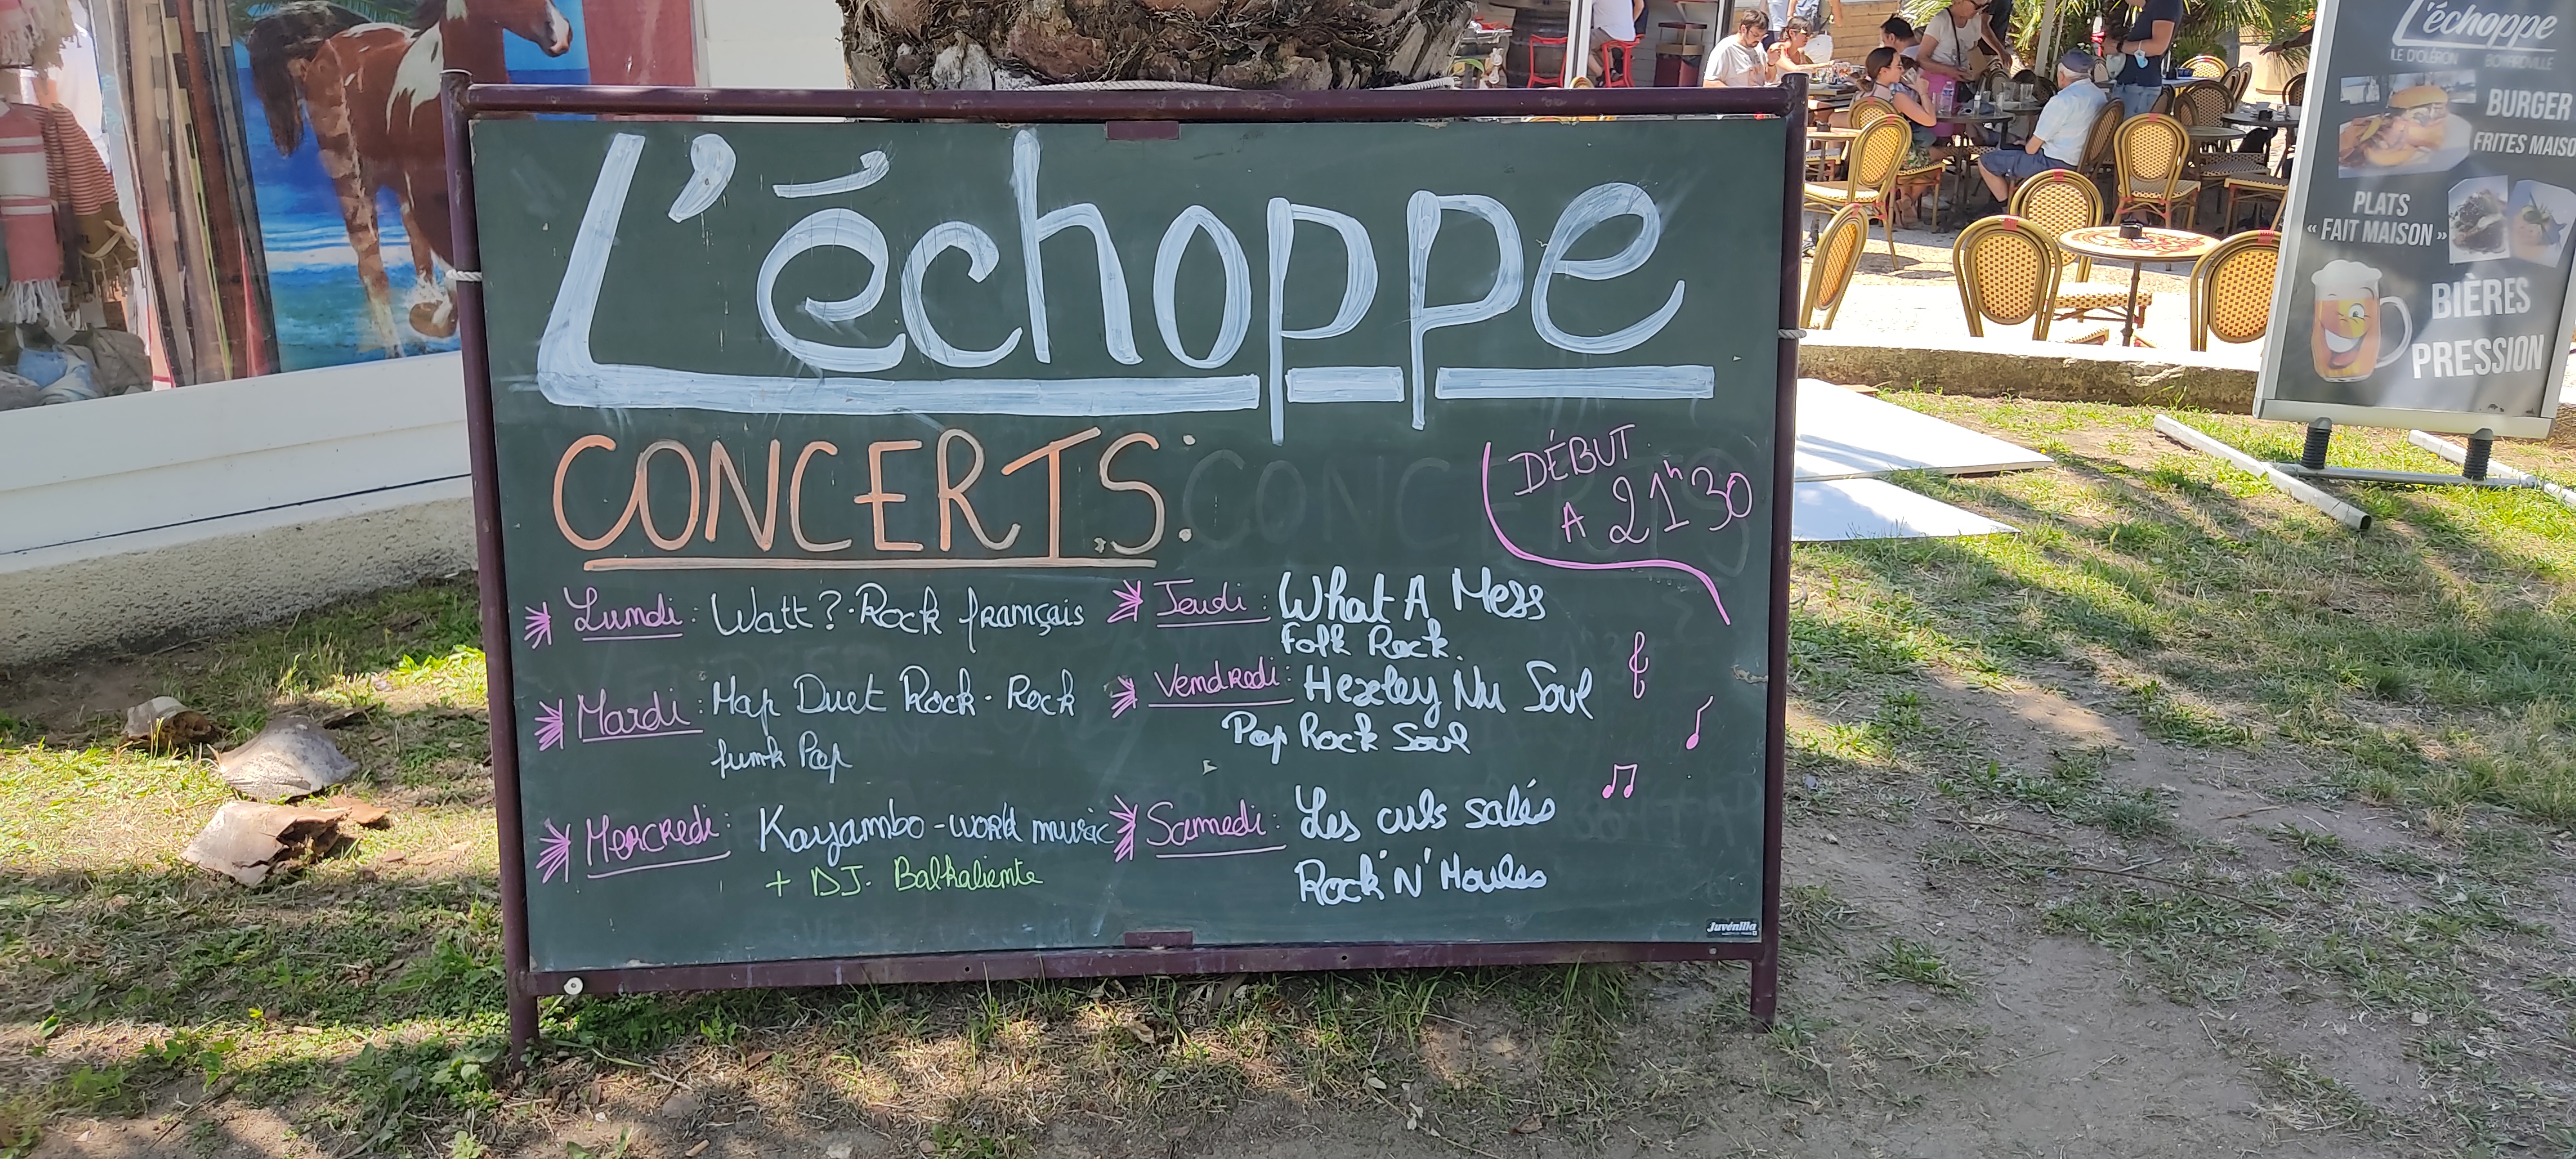 L'échoppe
CONCERTS:
DÉBUT
A 21h30
Lundi: Watt? · Rock français
Mardi: Map Duet Rock · Rock
funk Pop
Mercredi: Kayambo - world music
+ DJ. Balkaliente
Jeudi: What A Mess
Folk Rock.
Vendredi: Hexley Nu Soul
Pop Rock Soul
Samedi: Les culs salés
Rock'N'Moules
Juvénilia
L'échoppe
ILE D'OLÉRON BOYARDVILLE
BURGER
FRITES MAISO
PLATS
« FAIT MAISON »
BIÈRES
PRESSION